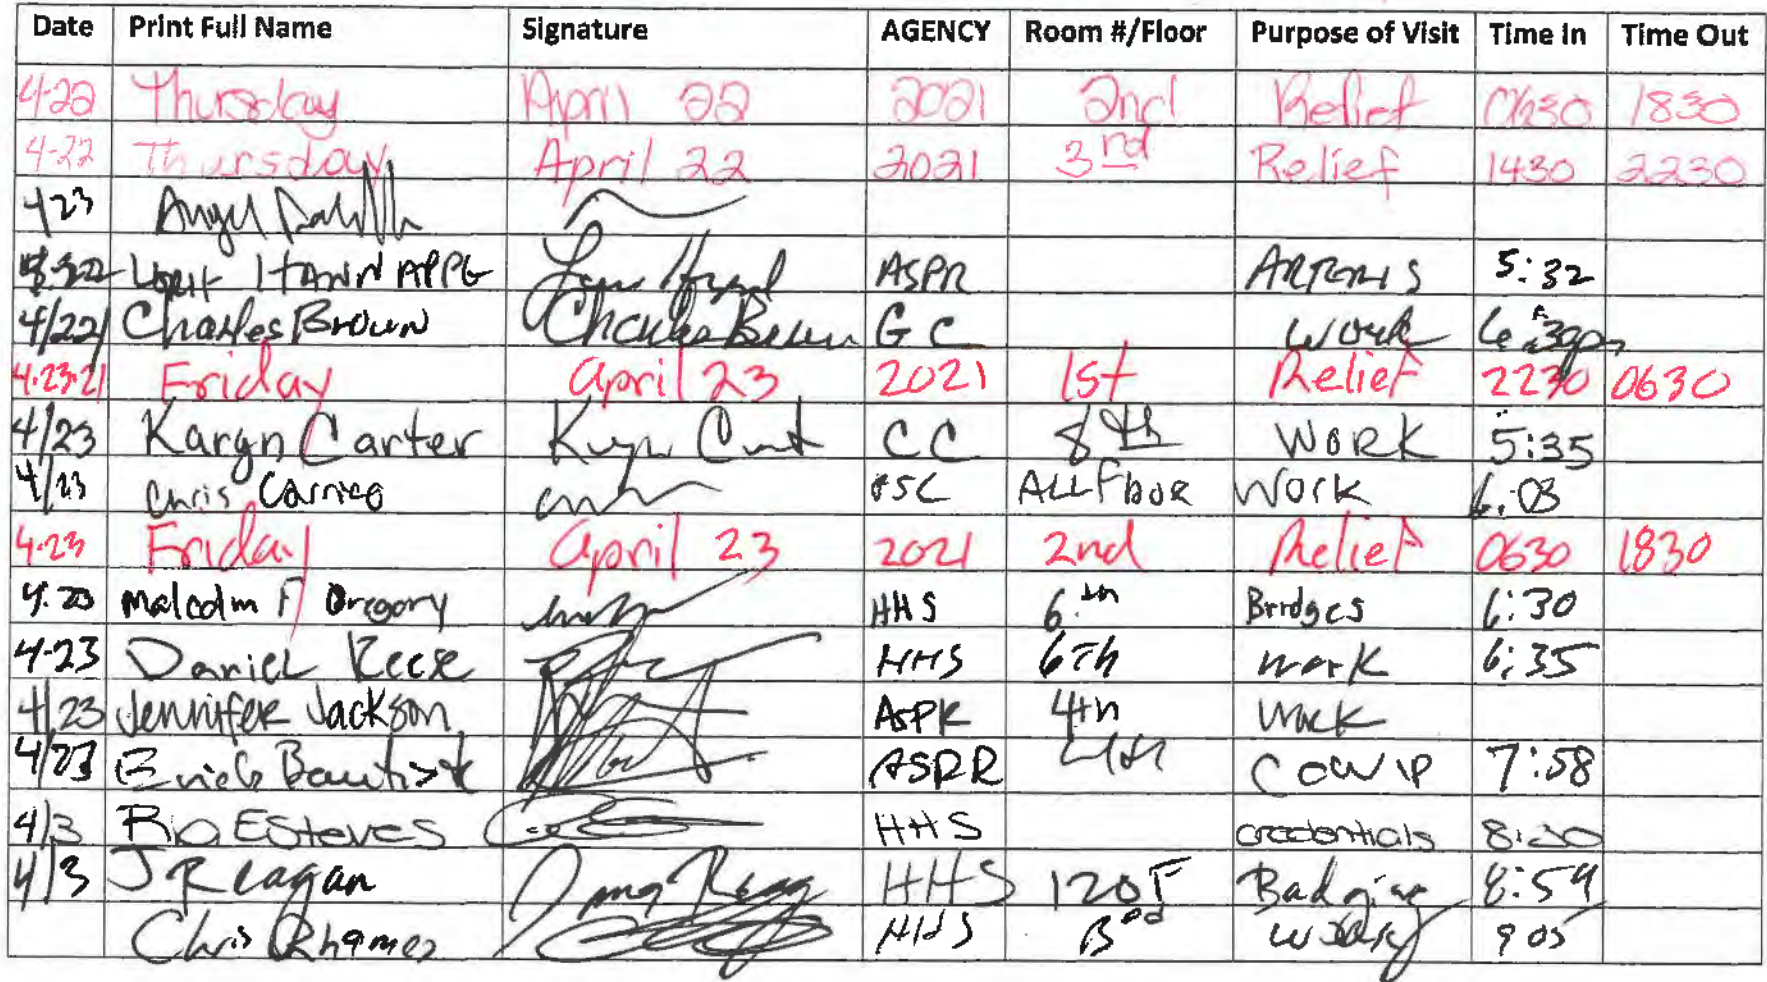 Date Print Full Name Signature AGENCY Room #/Floor Purpose of Visit Time In Time Out
4-22 Thursday April 22 2021 2nd Relief 0630 1830
4-22 Thursday April 22 2021 3rd Relief 1430 2230
423 Angel
ASPR 5:32
4/22 Charles Brown Charles Brown GC Work 6:30pm
4-23-21 Friday April 23 2021 1st Relief 2230 0630
4/23 Karyn Carter CC 8th WORK 5:35
4/23 Chris Carrico PSC ALL FlooR Work 6:03
4-23 Friday April 23 2021 2nd Relief 0630 1830
4.23 Malcolm F Gregory HHS 6th Bridges 6:30
4-23 Daniel Reese HHS 6Th work 6:35
4/23 Jennifer Jackson ASPR 4th work
4/23 Bautista ASPR 4th 7:58
4/3 Rio Esteves HHS credentials 8:30
4/3 J Reagan HHS 120F Badging 8:59
Chris HHS 905